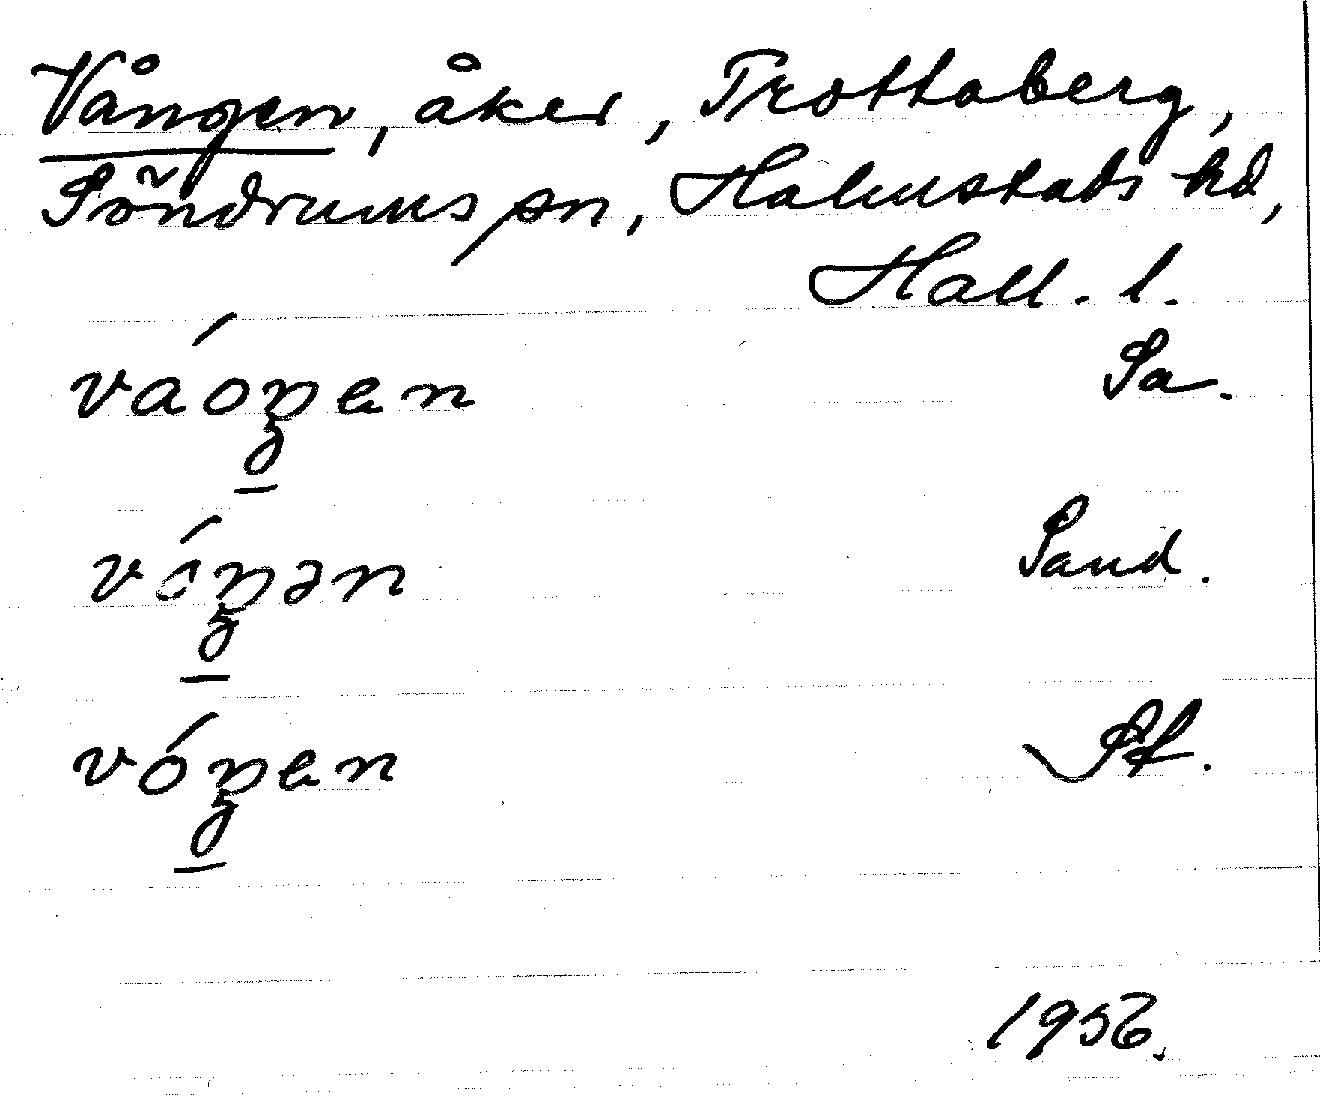 Vången, åker, Trottaberg,
Söndrums sn, Halmstads hd,
Hall. l.
váoŋen Sa.
vóŋən Sand.
vóŋen Sf.
1956.